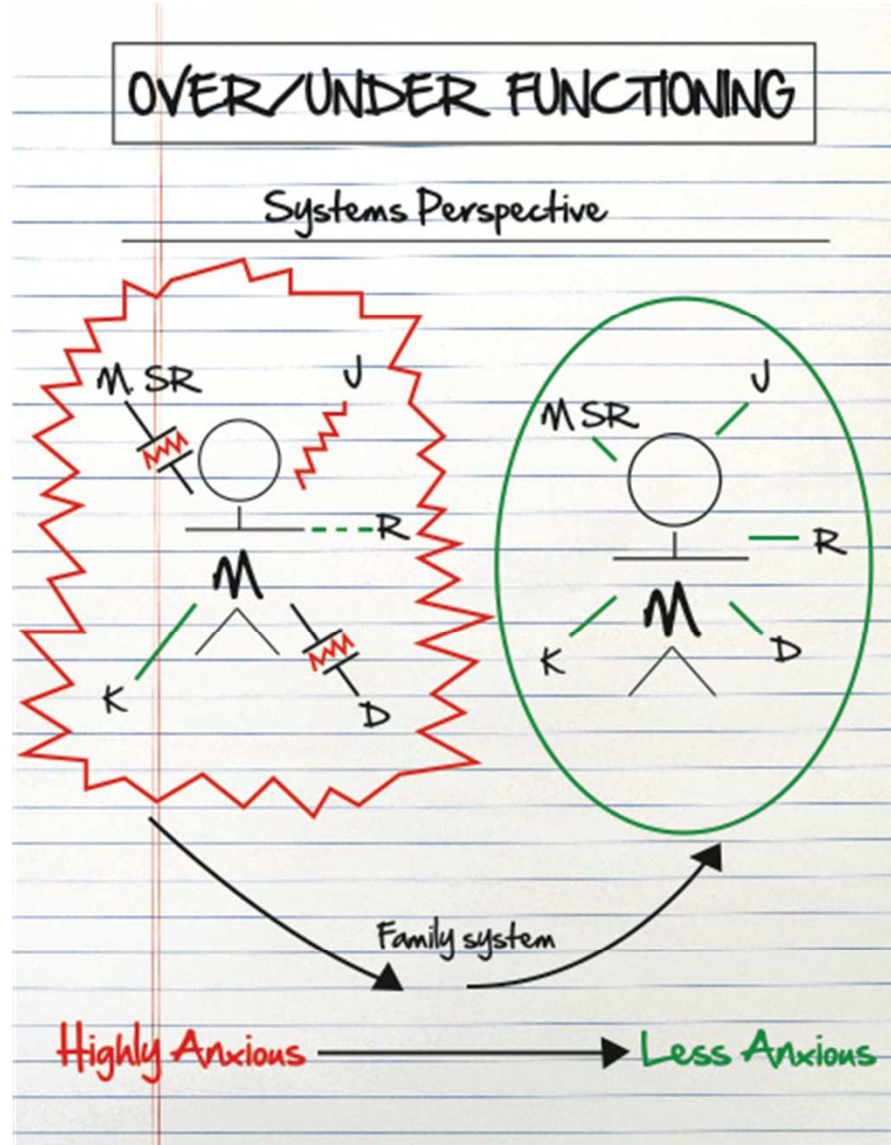 OVER/UNDER FUNCTIONING
Systems Perspective
M. SR
J
R
M
K
D
M SR
J
R
M
K
D
Family system
Highly Anxious
Less Anxious